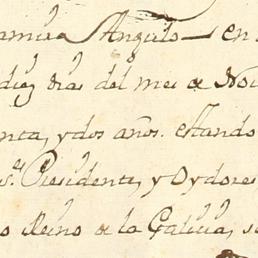 Angulo en
diez dias del mes de No
enta, y dos años. estando
s.es Presidente, y Oydores
o Reino de la Galicia, s